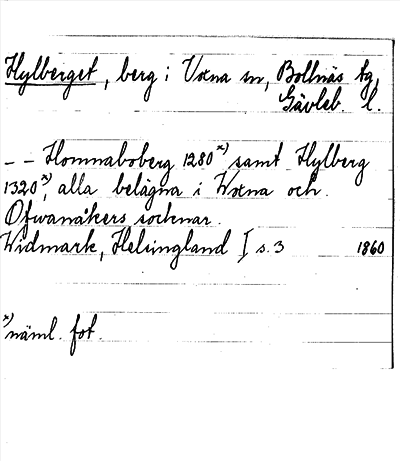 Hylberget, berg i Voxna sn, Bollnäs tg,
Gävleb. l.
– – Homnaboberg 1280 x) samt Hylberg
1320 x), alla belägna i Woxna och
Ofwanåkers socknar.
Widmark, Helsingland I s. 3 1860
x) näml. fot.